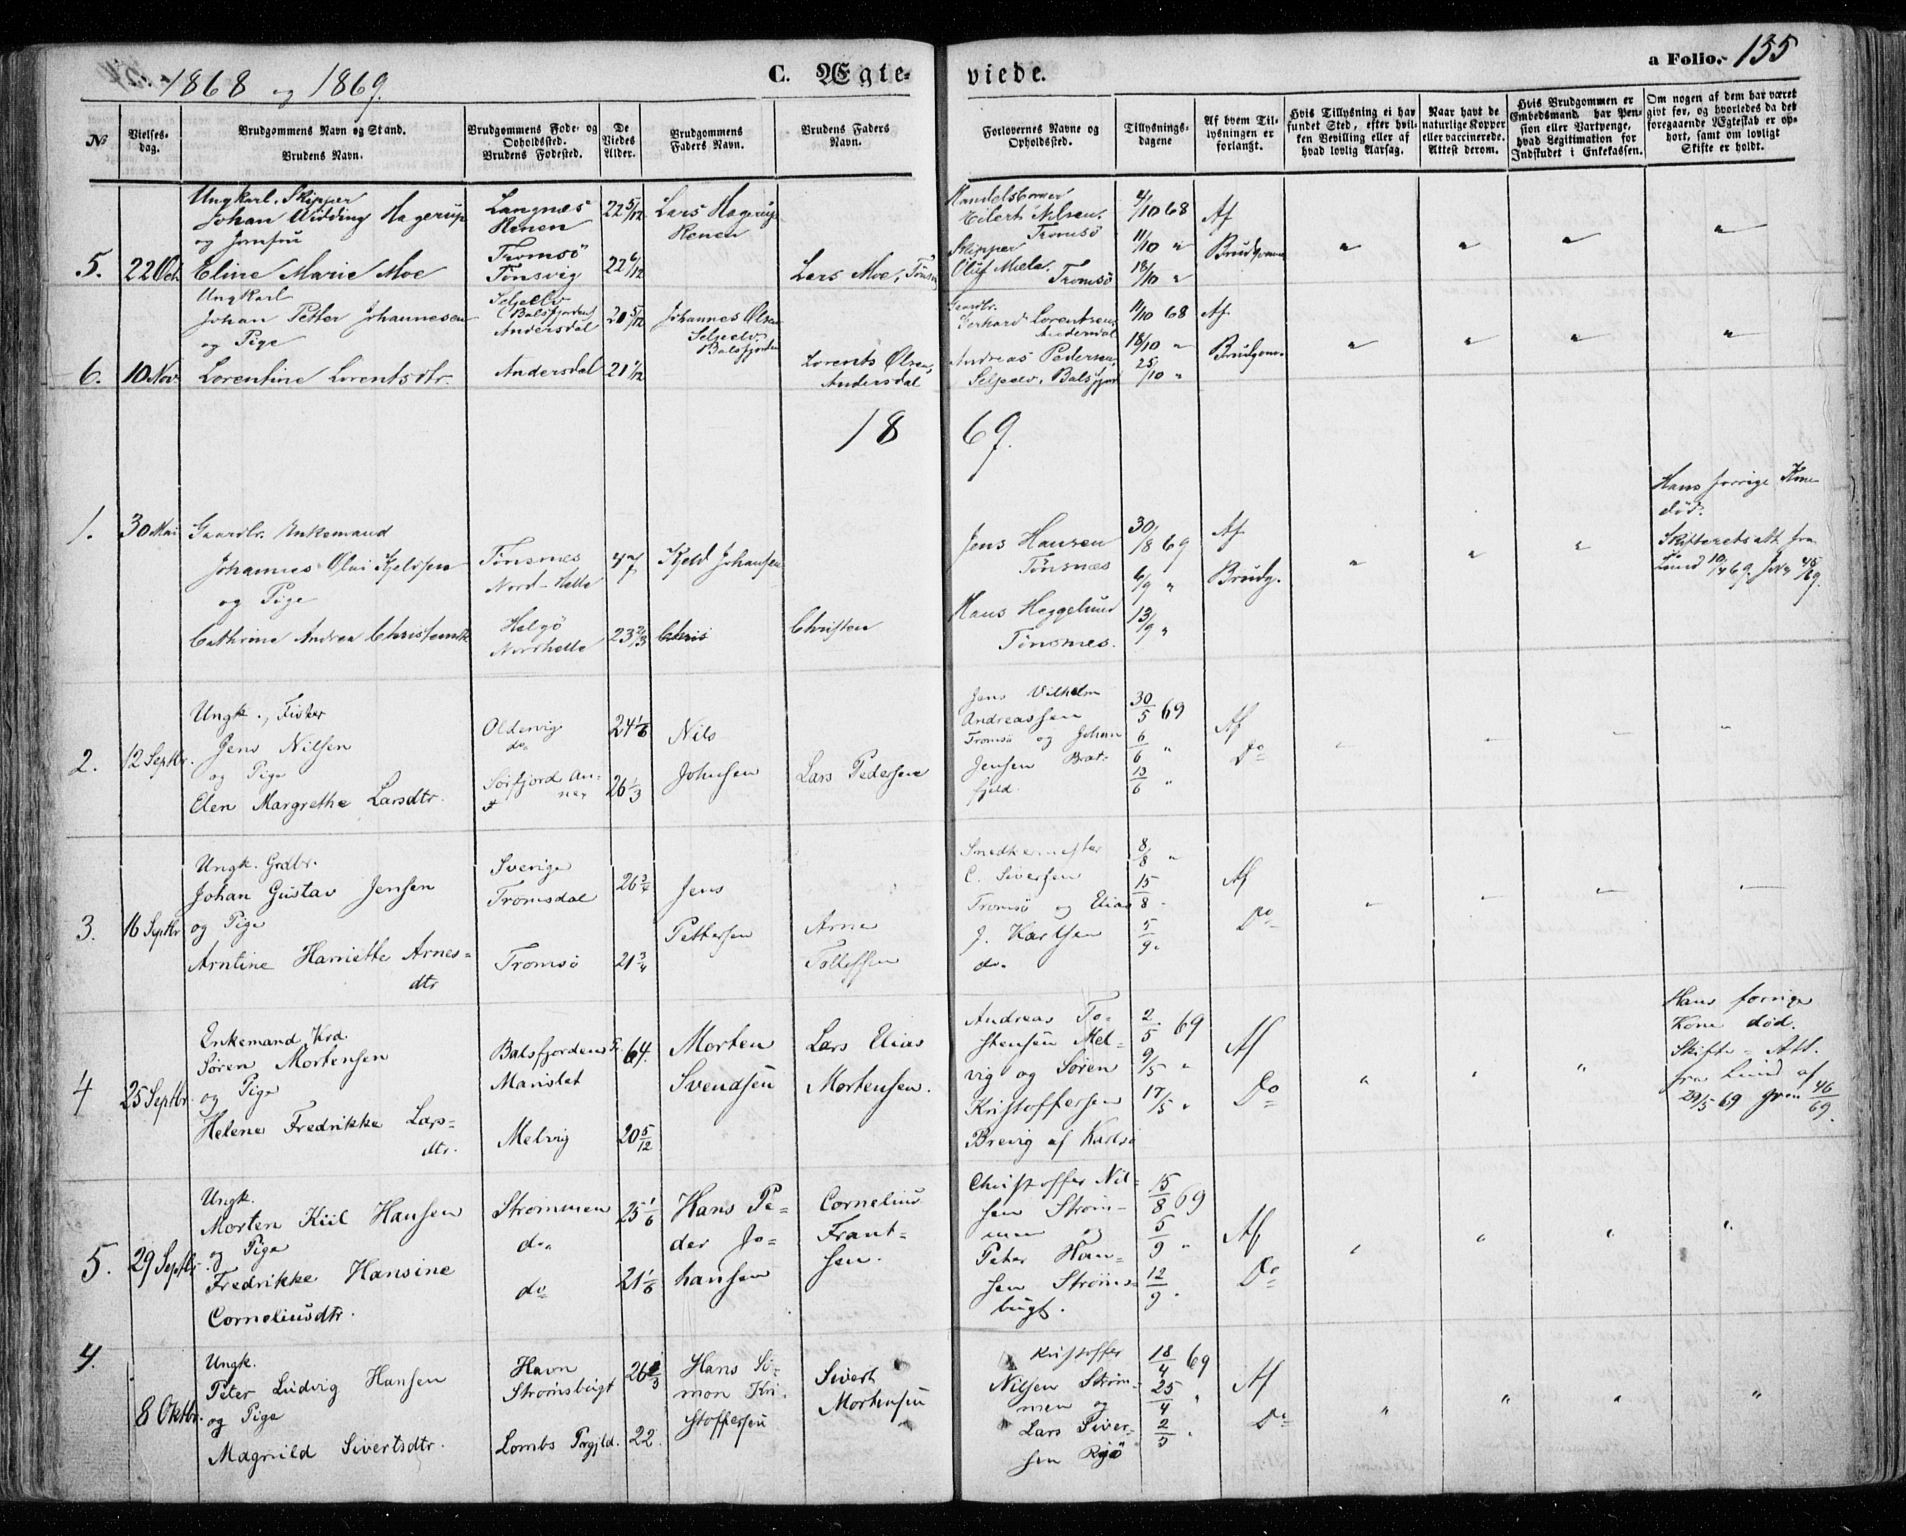 1868 og 1869.
C. Ægte-
viede.
a Folio. 155
No
Vielses-
dag.
Brudgommens Navn og Stand.
Brudens Navn.
Brudgommens Føde- og
Opholdssted.
Brudens Fødested.
De
Viedes
Alder.
Brudgommens
Faders Navn.
Brudens Faders
Navn.
Forlovernes Navne og
Opholdssted.
Tillysnings-
dagene
Af hvem Til-
lysningen er
forlangt.
Hvis Tillysning ei har
fundet Sted, efter hvil-
ken Bevilling eller af
hvad lovlig Aarsag.
Naar havt de
naturlige Kopper
eller vaccinerede.
Attest derom.
Hvis Brudgommen er
Embedsmand, har Pen-
sion eller Vartpenge,
hvad Legitimation for
Indskudet i Enkekassen.
Om nogen af dem har været
givt før, og hvorledes da det
foregaaende Ægteskab er op-
hørt, samt om lovligt
Skifte er holdt.
5.
22 Oct.
Ungkarl, Skipper
Johan Widding Hagerup
og Jomfru
Eline Marie Moe
Langnes
Renen
Tromsø
Tønsvig
22 5/12
22 6/12
Lars Hagerup
Renen
Lars Moe,
Handelsborger
Eilert Nilsen,
Tromsø
Skipper
Oluf Mæle.
Tromsø
4/10 68
11/10 "
18/10 "
Af
Brudgommen
" " " "
6.
10 Nov.
Ungkarl
Johan Petter Johannesen
og Pige
Lorentine Lorentsdtr.
Seljeelv
(Balsfjorden)
Andersdal
Andersdal
20 5/12
21 1/12
Johannes Olsen
Seljeelv.
Balsfjorden
Lorents Olsen,
Andersdal
Gaardbr.
Gerhard Lorentsen,
Andersdal
Andreas Pedersen,
Seljeelv, Balsfjord
11/10 68
18/10 "
25/10 "
Af
Brudgom.
" " " "
18 69.
1.
30 Mai
Gaardbr. Enkemand
Johannes Olai Kjeldsen
og Pige
Cathrine Andrea Christensdtr
Tønsnes
Nord-Helle
Helgø
Nordhelle
47
23 2/3
Kjeld Johansen
Chris
Christen
Jens Hansen
Tønsnæs
Hans Heggelund
Tønsnes.
30/8 69
6/9 "
13/9 "
Af
Brudg.
" " "
Hans forrige Kone
død.
Skifteretsatt. fra
Lund 10/4 69. 45/69.
2.
12 Septbr.
Ungk., Fisker
Jens Nilsen
og Pige
Elen Margrethe Larsdtr.
Oldervig
do
Sørfjord An-
nex
24 1/6
26 1/3
Nils
Johnsen
Lars Pedersen
Jens Vilhelm
Andreassen
Tromsø og Johan
Jensen Brat-
fjeld.
30/5 69
6/6 "
13/6 "
Af
Do
3.
16 Septbr
Ungk. Grdbr.
Johan Gustav Jensen
og Pige
Arntine Hariette Arnes-
dtr
Sverige
Tromsdal
Tromsø
26 3/4
21 3/4
Jens
Pettersen
Arne
Tollefsen
Snedkermester
C. Sivertsen
Tromsø og Elias
J. Karlsen
do.
8/8 "
15/8 "
5/9 "
Af
Do
4
25 Septbr.
Enkemand, Krd.
Søren Mortensen
og Pige
Helene Fredrikke Lars-
dtr.
Balsfjordens Pr
Marislet
Melvig
64.
20 5/12
Morten
Svendsen
Lars Elias
Mortensen.
Andreas To-
stensen Mel-
vig og Søren
Kristoffersen
Brevig af Karlsø
2/5 69
9/5 "
17/5 "
Af
Do
" " "
Hans forrige
Kone død.
Skifte-Att.
fra Lund af
29/5 69 46/69.
5.
29 Septbr
Ungk.
Morten Kiil Hansen
og Pige
Fredrikke Hansine
Corneliusdtr.
Strømmen
do.
do
25 1/6
21 1/6
Hans Pe-
der Jo-
hansen
Cornelius
Frant-
sen.
Christoffer Nil-
sen Strøm-
men og
Peter Han-
sen Strøms-
bugt.
15/8 69
5/9 "
12/9 "
Af
Do
" " " "
4.
8 Oktbr.
Ungk.
Peter Ludvig Hansen
og Pige
Magnild Sivertsdtr.
Havn
Strømsbugt
Lombs Prgjld.
26 2/3
22.
Hans Si-
mon Kri-
stoffersen
Sivert
Mortensen
Kristoffer
Nilsen Strøm-
men og
Lars Siver-
sen Ryø
18/4 69
25/4 "
2/5 "
Af
Do
" " " "